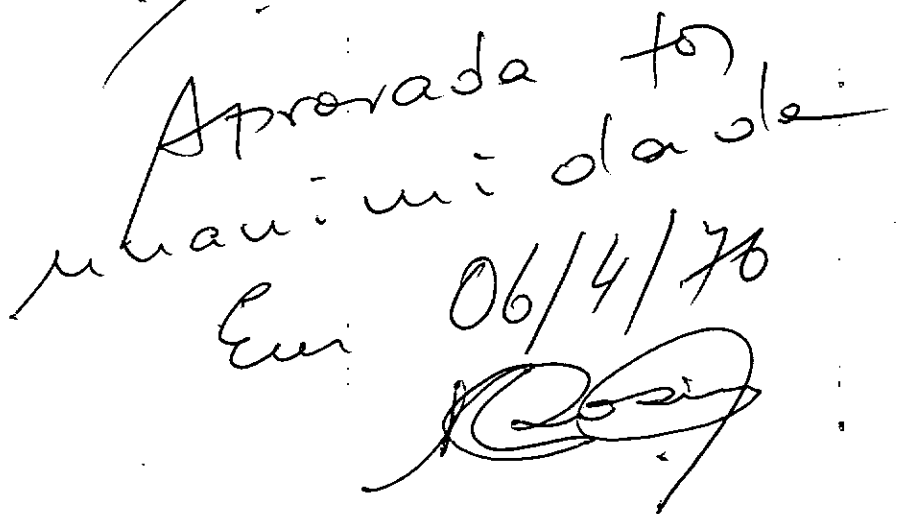 Aprovada por
unanimidade
Em 06/4/76